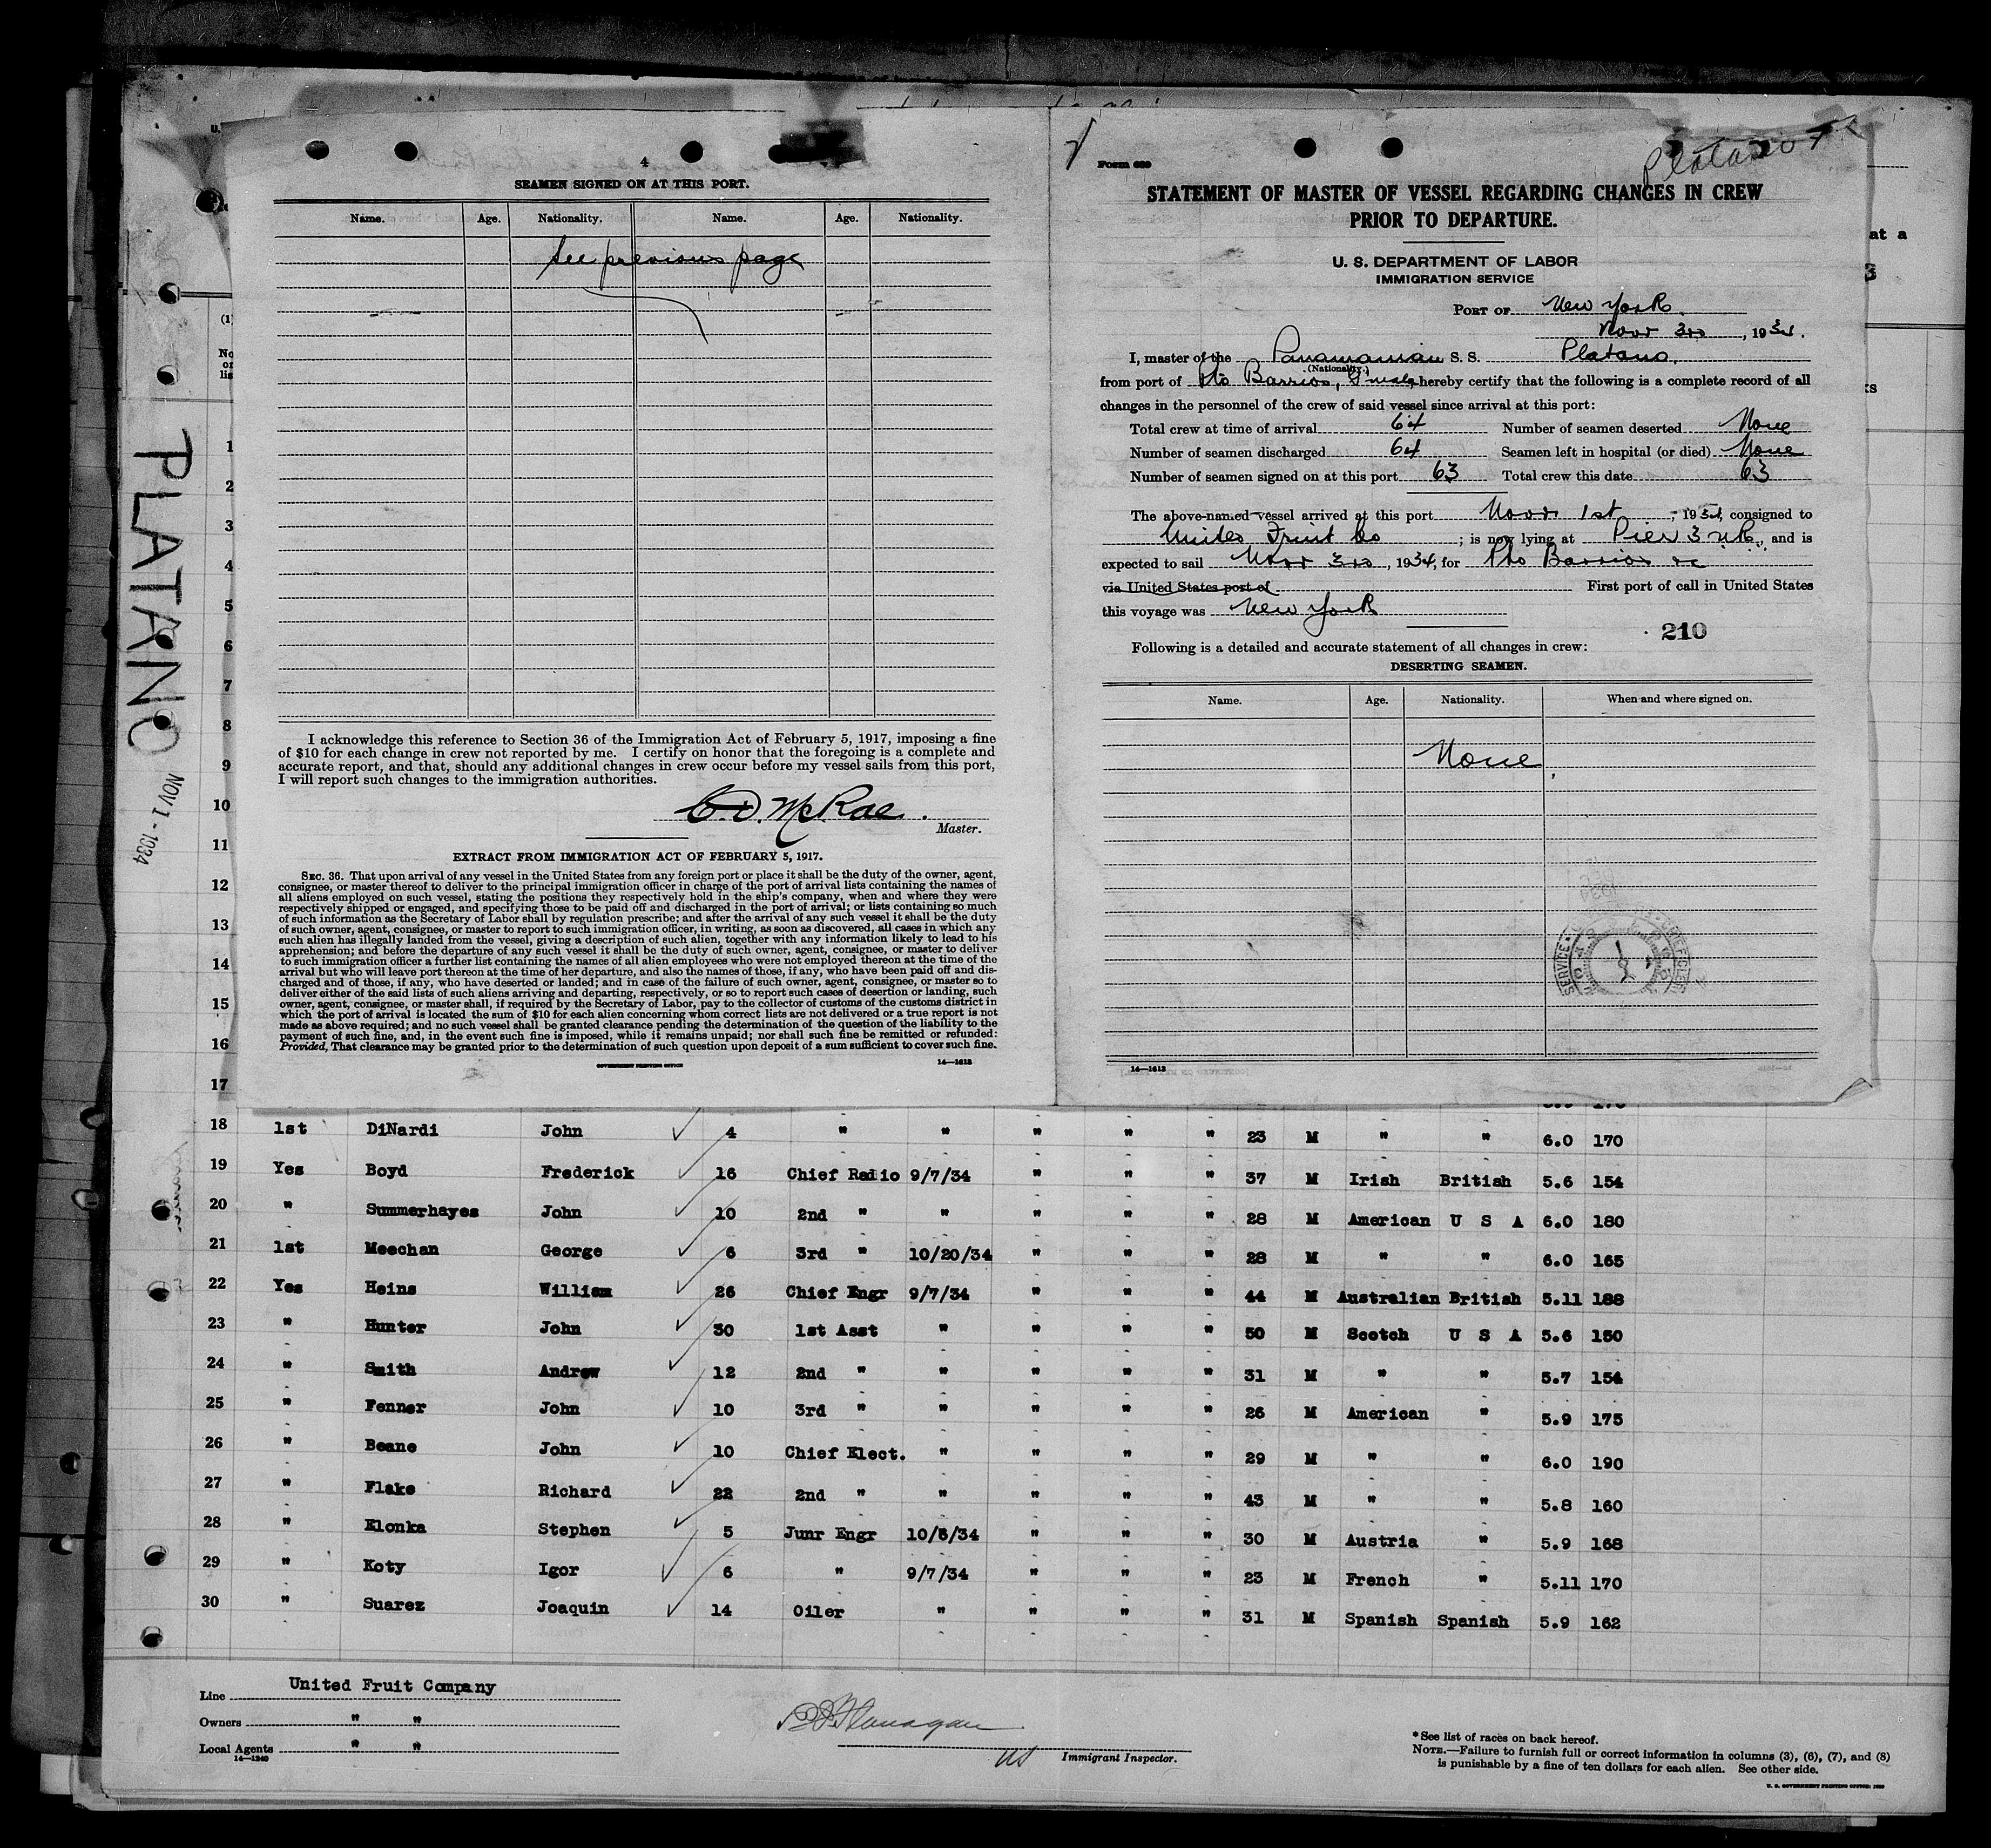 4
SEAMEN SIGNED ON AT THIS PORT.
Name. Age. Nationality. Name. Age. Nationality.
See previous page
I acknowledge this reference to Section 36 of the Immigration Act of February 5, 1917, imposing a fine
of $10 for each change in crew not reported by me. I certify on honor that the foregoing is a complete and
accurate report, and that, should any additional changes in crew occur before my vessel sails from this port,
I will report such changes to the immigration authorities.
C. D. McRae.
Master.
EXTRACT FROM IMMIGRATION ACT OF FEBRUARY 5, 1917.
SEC. 36. That upon arrival of any vessel in the United States from any foreign port or place it shall be the duty of the owner, agent,
consignee, or master thereof to deliver to the principal immigration officer in charge of the port of arrival lists containing the names of
all aliens employed on such vessel, stating the positions they respectively hold in the ship's company, when and where they were
respectively shipped or engaged, and specifying those to be paid off and discharged in the port of arrival; or lists containing so much
of such information as the Secretary of Labor shall by regulation prescribe; and after the arrival of any such vessel it shall be the duty
of such owner, agent, consignee, or master to report to such immigration officer, in writing, as soon as discovered, all cases in which any
such alien has illegally landed from the vessel, giving a description of such alien, together with any information likely to lead to his
apprehension; and before the departure of any such vessel it shall be the duty of such owner, agent, consignee, or master to deliver
to such immigration officer a further list containing the names of all alien employees who were not employed thereon at the time of the
arrival but who will leave port thereon at the time of her departure, and also the names of those, if any, who have been paid off and dis-
charged and of those, if any, who have deserted or landed; and in case of the failure of such owner, agent, consignee, or master so to
deliver either of the said lists of such aliens arriving and departing, respectively, or so to report such cases of desertion or landing, such
owner, agent, consignee, or master shall, if required by the Secretary of Labor, pay to the collector of customs of the customs district in
which the port of arrival is located the sum of $10 for each alien concerning whom correct lists are not delivered or a true report is not
made as above required; and no such vessel shall be granted clearance pending the determination of the question of the liability to the
payment of such fine, and, in the event such fine is imposed, while it remains unpaid; nor shall such fine be remitted or refunded:
Provided, That clearance may be granted prior to the determination of such question upon deposit of a sum sufficient to cover such fine.
GOVERNMENT PRINTING OFFICE 14—1613
Platano
Form 689
STATEMENT OF MASTER OF VESSEL REGARDING CHANGES IN CREW
PRIOR TO DEPARTURE.
U. S. DEPARTMENT OF LABOR
IMMIGRATION SERVICE
PORT OF New York
Novr 3rd, 1934.
I, master of the Panamanian S. S. Platano.
(Nationality.)
from port of Pto Barrios, G'mala, hereby certify that the following is a complete record of all
changes in the personnel of the crew of said vessel since arrival at this port:
Total crew at time of arrival 64 Number of seamen deserted None
Number of seamen discharged 64 Seamen left in hospital (or died) None
Number of seamen signed on at this port 63 Total crew this date 63
The above-named vessel arrived at this port Novr 1st, 1934, consigned to
United Fruit Co; is now lying at Pier 3 N.R., and is
expected to sail Novr 3rd, 1934, for Pto Barrios
via United States port of First port of call in United States
this voyage was New York
210
Following is a detailed and accurate statement of all changes in crew:
DESERTING SEAMEN.
Name. Age. Nationality. When and where signed on.
None
14—1613
PLATANO
NOV 1 - 1934
(1)
1
2
3
4
5
6
7
8
9
10
11
12
13
14
15
16
17
18 1st DiNardi John 4 " " " " " 23 M " " 6.0 170
19 Yes Boyd Frederick 16 Chief Radio 9/7/34 " " " 37 M Irish British 5.6 154
20 " Summerhayes John 10 2nd " " " " " 28 M American U S A 6.0 180
21 1st Meechan George 6 3rd " 10/20/34 " " " 28 M " " 6.0 165
22 Yes Heins William 26 Chief Engr 9/7/34 " " " 44 M Australian British 5.11 188
23 " Hunter John 30 1st Asst " " " " 50 M Scotch U S A 5.6 150
24 " Smith Andrew 12 2nd " " " " " 31 M " " 5.7 154
25 " Fenner John 10 3rd " " " " " 26 M American " 5.9 175
26 " Beane John 10 Chief Elect. " " " " 29 M " " 6.0 190
27 " Flake Richard 22 2nd " " " " " 43 M " " 5.8 160
28 " Klonka Stephen 5 Junr Engr 10/5/34 " " " 30 M Austria " 5.9 168
29 " Koty Igor 6 " 9/7/34 " " " 23 M French " 5.11 170
30 " Suarez Joaquin 14 Oiler " " " " 31 M Spanish Spanish 5.9 162
Line United Fruit Company
Owners " "
Local Agents " "
14—1240
Flanagan
US Immigrant Inspector.
* See list of races on back hereof.
NOTE.—Failure to furnish full or correct information in columns (3), (6), (7), and (8)
is punishable by a fine of ten dollars for each alien. See other side.
U. S. GOVERNMENT PRINTING OFFICE